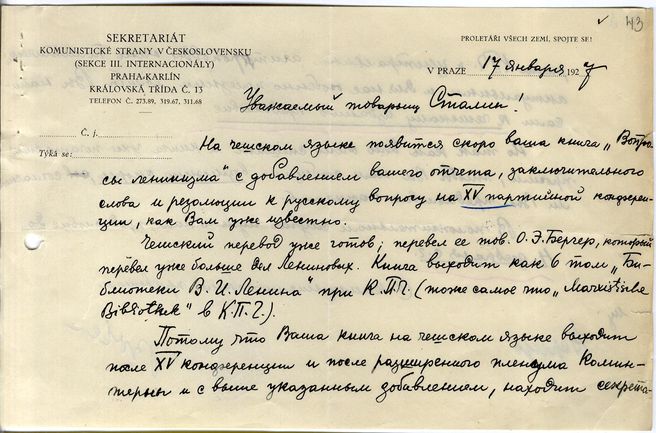 43
SEKRETARIÁT
KOMUNISTICKÉ STRANY V ČESKOSLOVENSKU
(SEKCE III. INTERNACIONÁLY)
PRAHA-KARLÍN
KRÁLOVSKÁ TŘÍDA Č. 13
TELEFON Č. 273.89, 319.67, 311.68
PROLETÁŘI VŠECH ZEMÍ, SPOJTE SE!
V PRAZE 17 января 1927
Уважаемый товарищ Сталин!
Č. j.
Týká se:
На чешском языке появится скоро ваша книга „Вопро-
сы ленинизма" с добавлением вашего отчета, заключительного
слова и резолюции к русскому вопросу на XV партийной конферен-
ции, как Вам уже известно.
Чешский перевод уже готов; перевел ее тов. О.Э. Бергер, который
перевел уже больше дел Лениновых. Книга выходит как 6 том „Би-
блиотеки В. И. Ленина" при К.П.Ч. (тоже самое что „Marxistische
Bibliothek" в К.П.Г.).
Потому что Ваша книга на чешском языке выходит
после XV конференции и после расширенного пленума Комин-
терны и с выше указанным добавлением, находит секрета-